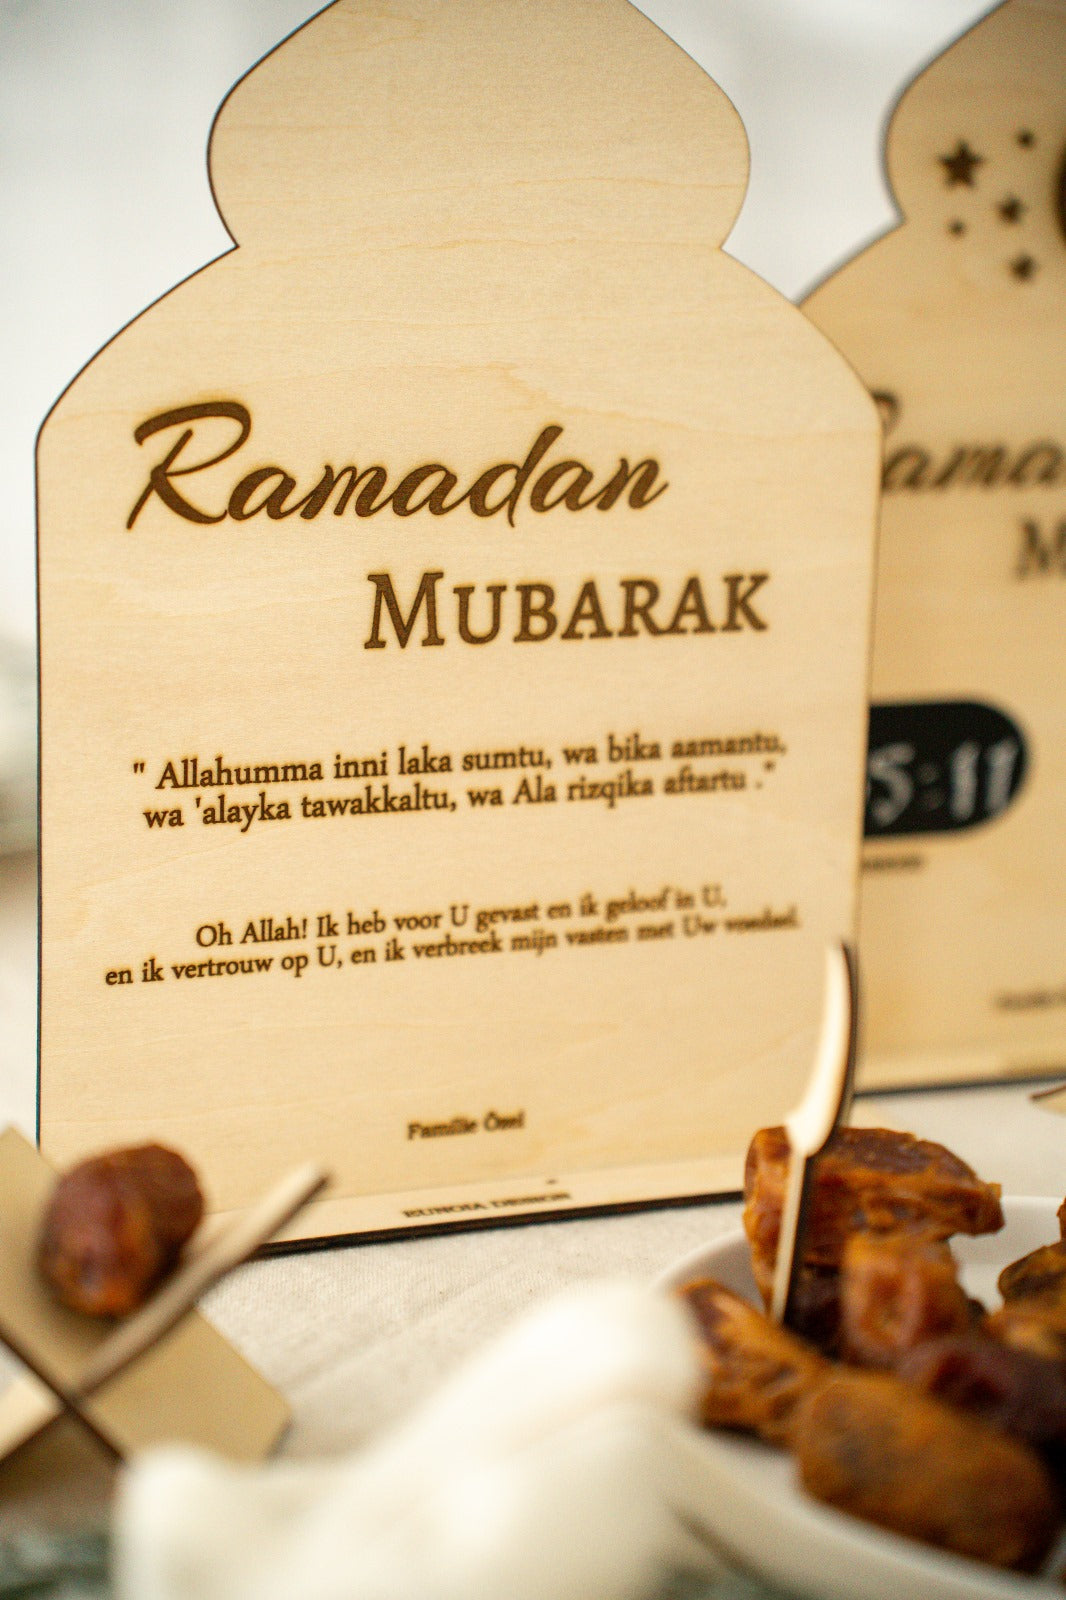 Ramadan
MUBARAK
" Allahumma inni laka sumtu, wa bika aamantu,
wa 'alayka tawakkaltu, wa Ala rizqika aftartu ."
Oh Allah! Ik heb voor U gevast en ik geloof in U,
en ik vertrouw op U, en ik verbreek mijn vasten met Uw voedsel.
Familie Özel
RUNOIA DESIGN
Rama
M